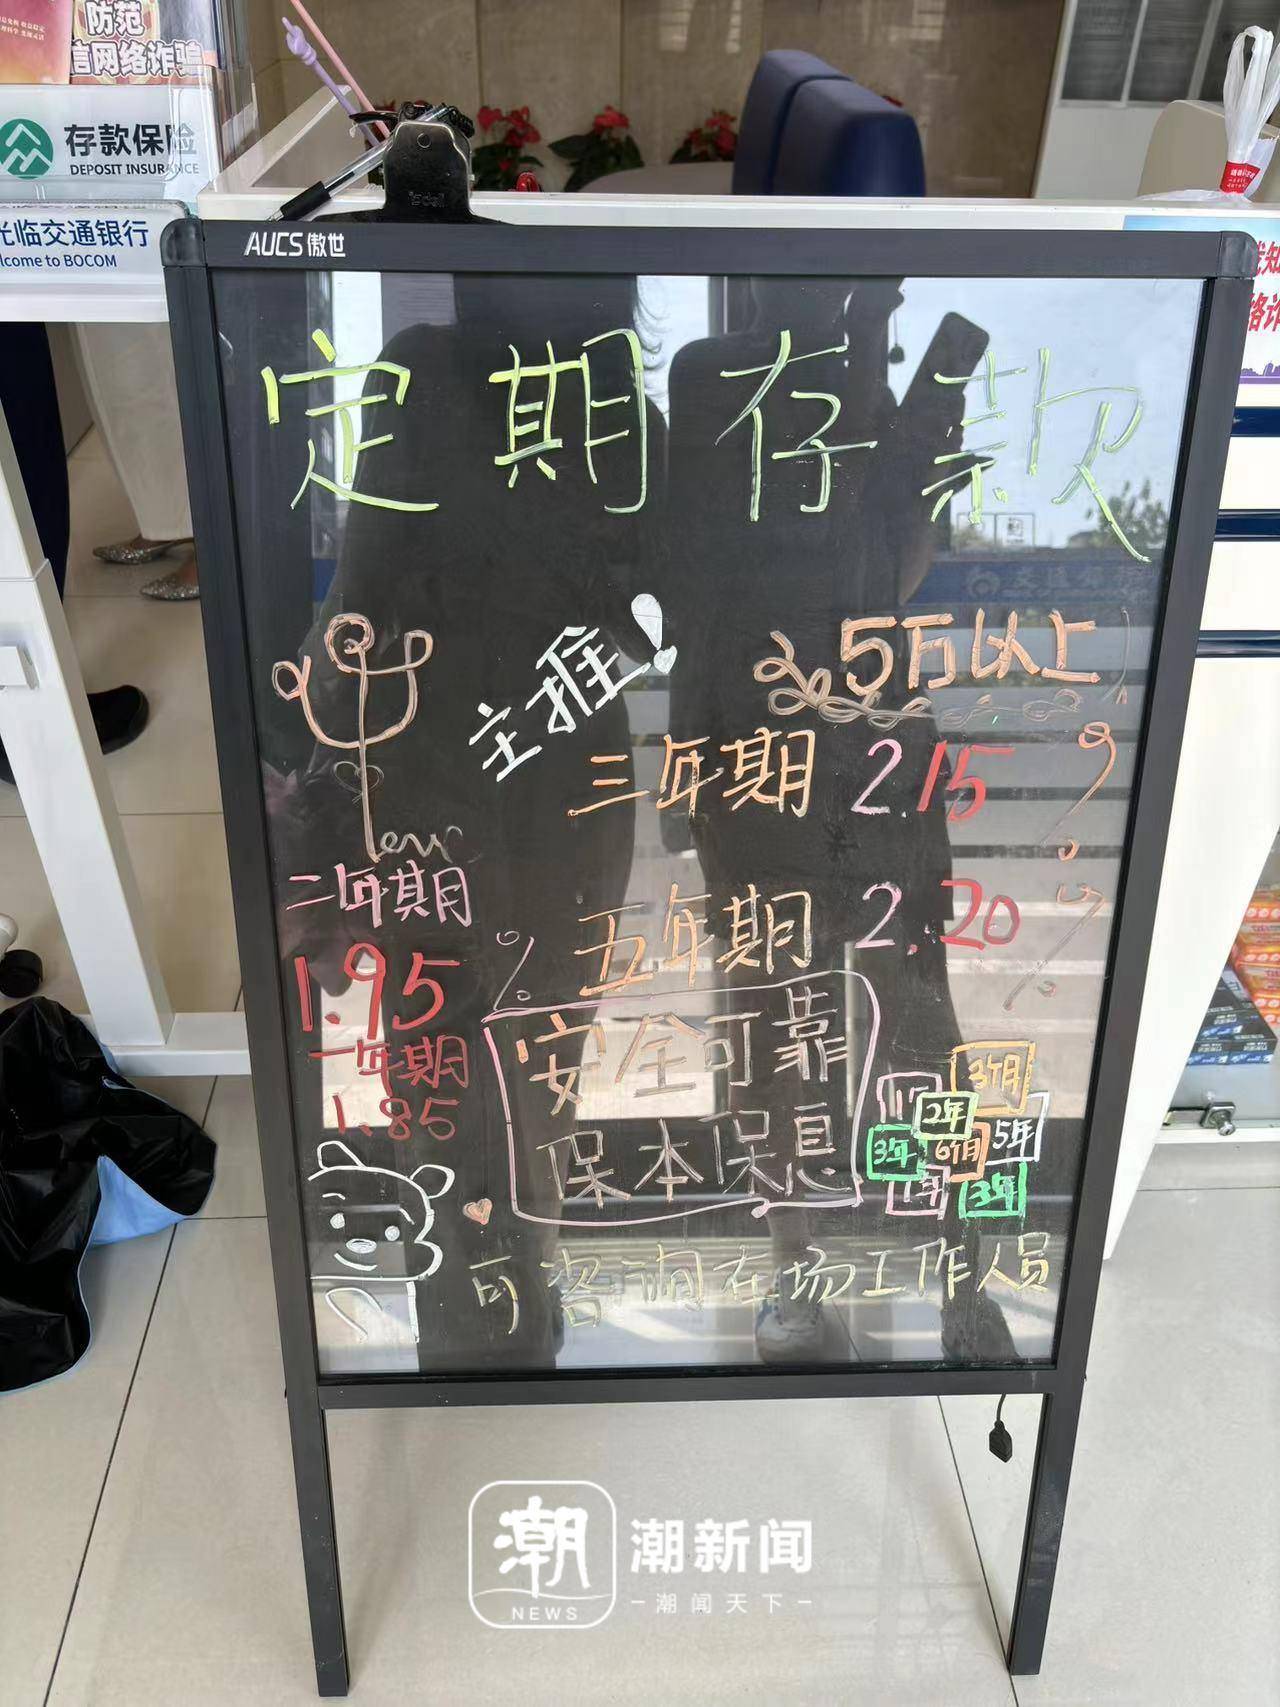 防范
信网络诈骗
存款保险
DEPOSIT INSURANCE
光临交通银行
lcome to BOCOM
AUCS 傲世
定期存款
主推!
5万以上
三年期 2.15 %
二年期
1.95
五年期 2.20 %
一年期
1.85
%
安全可靠
保本保息
3个月
2年
5年
3年
6个月
3年
可咨询在场工作人员
潮
NEWS
潮新闻
潮闻天下